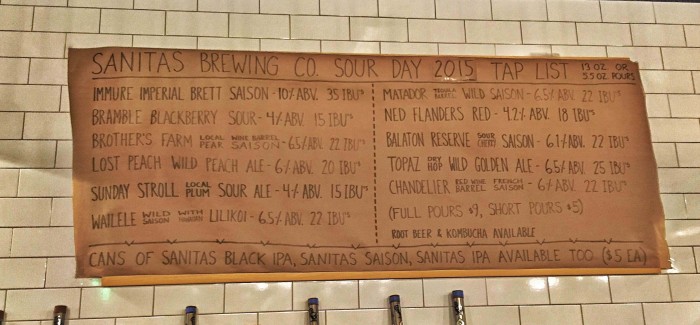 SANITAS BREWING CO. SOUR DAY 2015 TAP LIST 13 OZ OR 5.5 OZ POURS
IMMURE IMPERIAL BRETT SAISON - 10% ABV. 35 IBU'S
BRAMBLE BLACKBERRY SOUR - 4% ABV. 15 IBU'S
BROTHER'S FARM LOCAL PEAR WINE BARREL SAISON - 6.5% ABV. 22 IBU'S
LOST PEACH WILD PEACH ALE - 6% ABV. 20 IBU'S
SUNDAY STROLL LOCAL PLUM SOUR ALE - 4% ABV. 15 IBU'S
WAILELE WILD SAISON WITH LILIKOI - 6.5% ABV. 22 IBU'S
MATADOR TEQUILA BARREL WILD SAISON - 6.5% ABV. 22 IBU'S
NED FLANDERS RED - 4.2% ABV. 18 IBU'S
BALATON RESERVE SOUR CHERRY SAISON - 6.1% ABV. 22 IBU'S
TOPAZ DRY HOP WILD GOLDEN ALE - 6.5% ABV. 25 IBU'S
CHANDELIER RED WINE BARREL FRENCH SAISON - 6% ABV. 22 IBU'S
(FULL POURS $9, SHORT POURS $5)
ROOT BEER & KOMBUCHA AVAILABLE
CANS OF SANITAS BLACK IPA, SANITAS SAISON, SANITAS IPA AVAILABLE TOO ($5 EA)